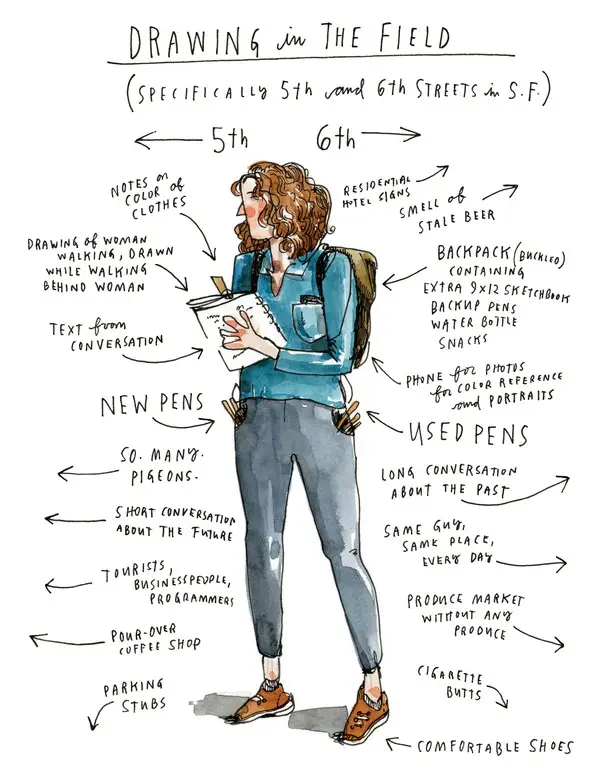 DRAWING in THE FIELD
(SPECIFICALLY 5th and 6th STREETS in S.F.)
5th
6th
NOTES on
COLOR of
CLOTHES
DRAWING of WOMAN
WALKING, DRAWN
WHILE WALKING
BEHIND WOMAN
TEXT from
CONVERSATION
NEW PENS
SO. MANY.
PIGEONS.
SHORT CONVERSATION
ABOUT THE FUTURE
TOURISTS,
BUSINESSPEOPLE,
PROGRAMMERS
POUR-OVER
COFFEE SHOP
PARKING
STUBS
RESIDENTIAL
HOTEL SIGNS
SMELL of
STALE BEER
BACKPACK (BUCKLED)
CONTAINING
EXTRA 9x12 SKETCHBOOK
BACKUP PENS
WATER BOTTLE
SNACKS
PHONE for PHOTOS
for COLOR REFERENCE
and PORTRAITS
USED PENS
LONG CONVERSATION
ABOUT THE PAST
SAME GUY,
SAME PLACE,
EVERY DAY
PRODUCE MARKET
WITHOUT ANY
PRODUCE
CIGARETTE
BUTTS
COMFORTABLE SHOES